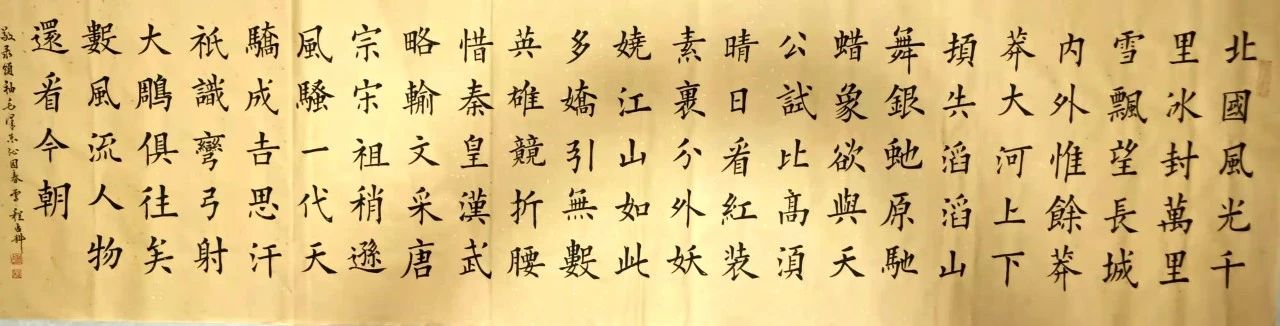 北國風光千
里冰封萬里
雪飄望長城
内外惟餘莽
莽大河上下
頓失滔滔山
舞銀虵原馳
蜡象欲與天
公試比髙須
晴日看紅装
素裹分外妖
嬈江山如此
多嬌引無數
英雄競折腰
惜秦皇漢武
略輸文采唐
宗宋祖稍遜
風騷一代天
驕成吉思汗
祇識彎弓射
大鵰俱往矣
數風流人物
還看今朝
敬录領袖毛澤东沁园春雪程